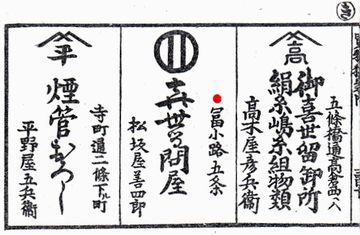 五條橋通高倉西へ入
高
御喜世留御所
絹糸嶋糸組物類
高木屋彦兵衛
冨小路五条
㐂世る問屋
松坂屋善四郎
平
煙管おろし
寺町通二條下ル町
平野屋五兵衛